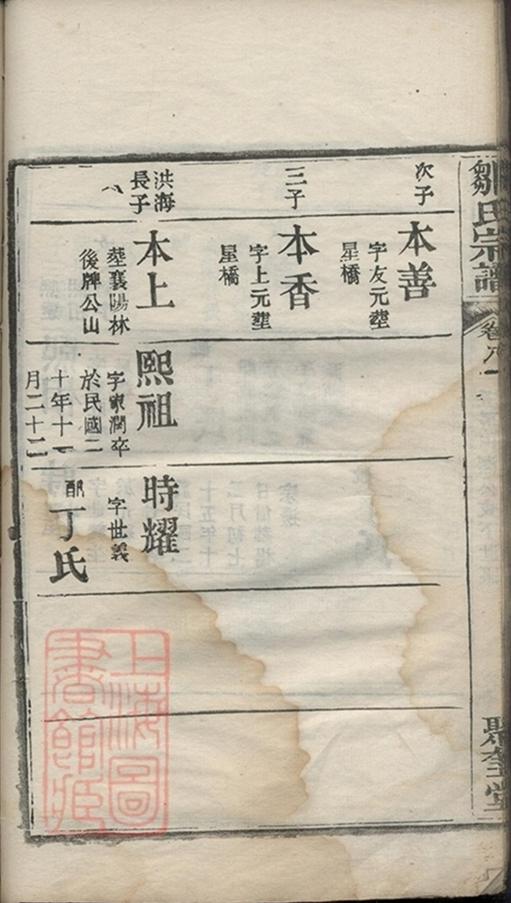 鄒氏宗譜
卷八
聚奎堂
次子
本善
字友元塟
星橋
三子
本香
字上元塟
星橋
洪海
長子
本上
塟襄陽林
後牌公山
熙祖
字東潤卒
於民國二
十年十一
月二十二
時耀
字世義
配丁氏
上海圖
書館